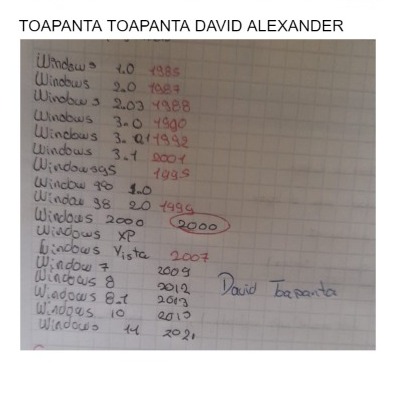 TOAPANTA TOAPANTA DAVID ALEXANDER
Windows 1.0 1985
Windows 2.0 1987
Windows 2.03 1988
Windows 3.0 1990
Windows 3. 1992
Windows 3.1 2001
Windows 95 1995
Window 98 1.0
Window 98 2.0 1999
Windows 2000 2000
Windows XP
Windows Vista 2007
Window 7 2009
Windows 8 2012
Windows 8.1 2013
Windows 10 2015
Windows 11 2021
David Toapanta